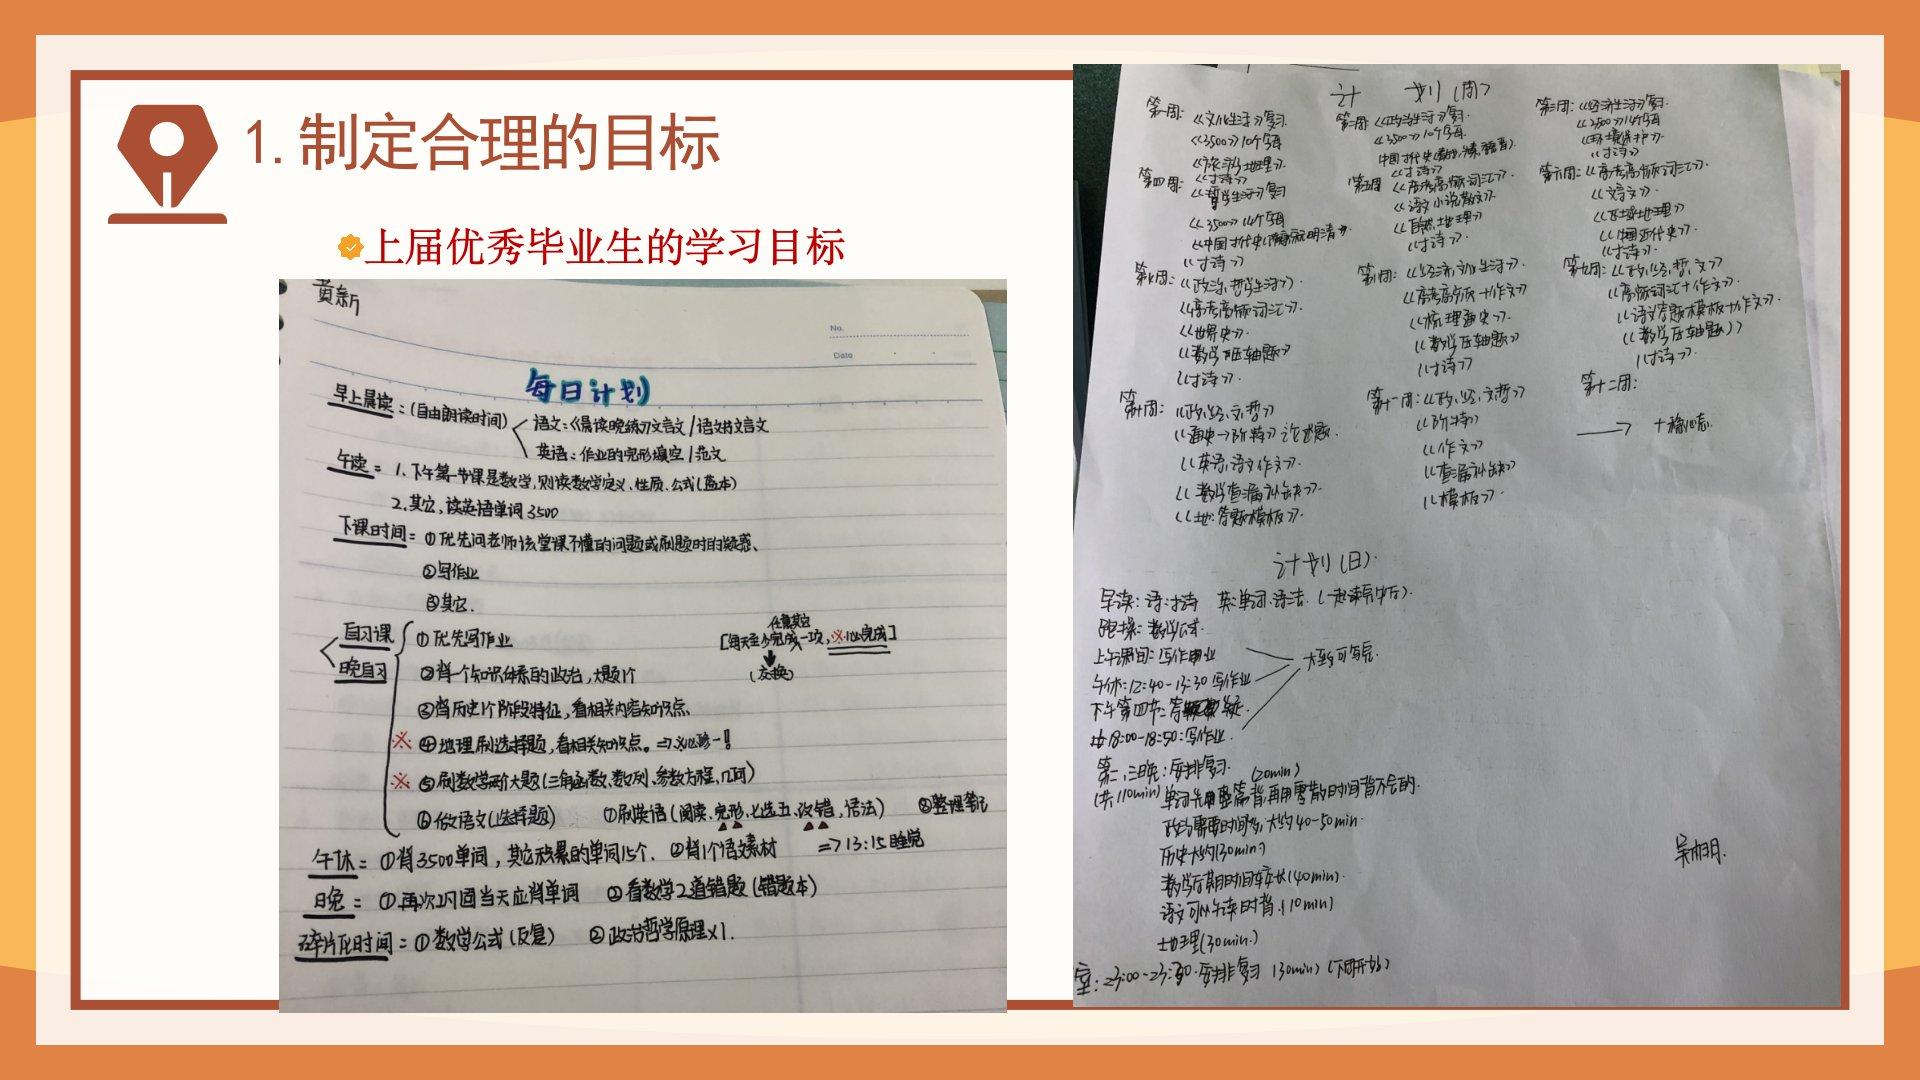 1. 制定合理的目标
上届优秀毕业生的学习目标
黄新
No.
Date
每日计划
早上晨读：(自由朗读时间)
语文：《晨读晚练》文言文/语文书文言文
英语：作业的完形填空/范文
午读：1.下午第一节课是数学,则读数学定义、性质、公式(蓝本)
2.其它,读英语单词3500
下课时间：①优先问老师该堂课不懂的问题或刷题时的疑惑、
②写作业
③其它.
自习课
晚自习
①优先写作业
任意其它
[每天至少完成一项,※必完成]
(交换)
②背一个知识体系的政治,大题1个
③背历史1个阶段特征,看相关内容知识点、
※④地理刷选择题,看相关知识点。
※⑤刷数学两个大题(三角函数、数列、参数方程、几何)
⑥做语文(选择题) ⑦刷英语(阅读、完形、七选五、改错,语法) ⑧整理笔记
午休：①背3500单词,其它积累的单词15个. ②背1个语文素材 =>13:15睡觉
晚：①再次巩固当天应背单词 ②看数学2道错题(错题本)
碎片化时间：①数学公式(反复) ②政治哲学原理x1.
计划(周)
第一周：《文化生活》复习.
《3500》10个字母
《旅游地理》.
《古诗》
第二周《政治生活》复习.
《3500》10个字母.
《古诗》
第三周：《经济生活》复习.
《3500》14个字母
《环境保护》.
《古诗》
第四周：《哲学生活》复习
《3500》14个字母
《古诗》
第五周《高考高频词汇》.
《语文小说散文》.
《自然地理》
《古诗》.
第六周：《高考高频词汇》.
《文言文》.
《区域地理》
《中国近代史》.
《古诗》.
第七周：《政治,哲学生活》.
《高考高频词汇》.
《世界史》.
《数学压轴题》
《古诗》.
第八周：《经济,文化生活》.
《高考高频+作文》
《梳理通史》.
《数学压轴题》
《古诗》
第九周：《政,经,哲,文》
《高频词汇+作文》.
《语文答题模板+作文》.
《数学压轴题》
《古诗》.
第十周：《政,经,文,哲》
《通史→阶特》论述题.
《英语,语文作文》.
《数学查漏补缺》.
《地:答题模板》.
第十一周：《政,经,文,哲》
《阶特》
《作文》
《查漏补缺》
《模板》.
第十二周：
→ +稳心态.
计划(日).
早读：语:古诗 英:单词、语法.
跑操：数学公式.
上午课间：写作业
大致可写完.
午休：12:40-13:30 写作业
下午第四节：答疑.
18:00-18:50:写作业.
第二,三晚：安排复习.
(共110min)单词先用整篇背,再用零散时间背不会的. (20min)
政治需要时间多,大约40-50min.
历史大约(30min)
数学后期时间较长(40min).
语文可以午读时背.(10min)
地理(30min.)
吴雨玥.
室：23:00-23:30.安排复习(30min)(下周开始)